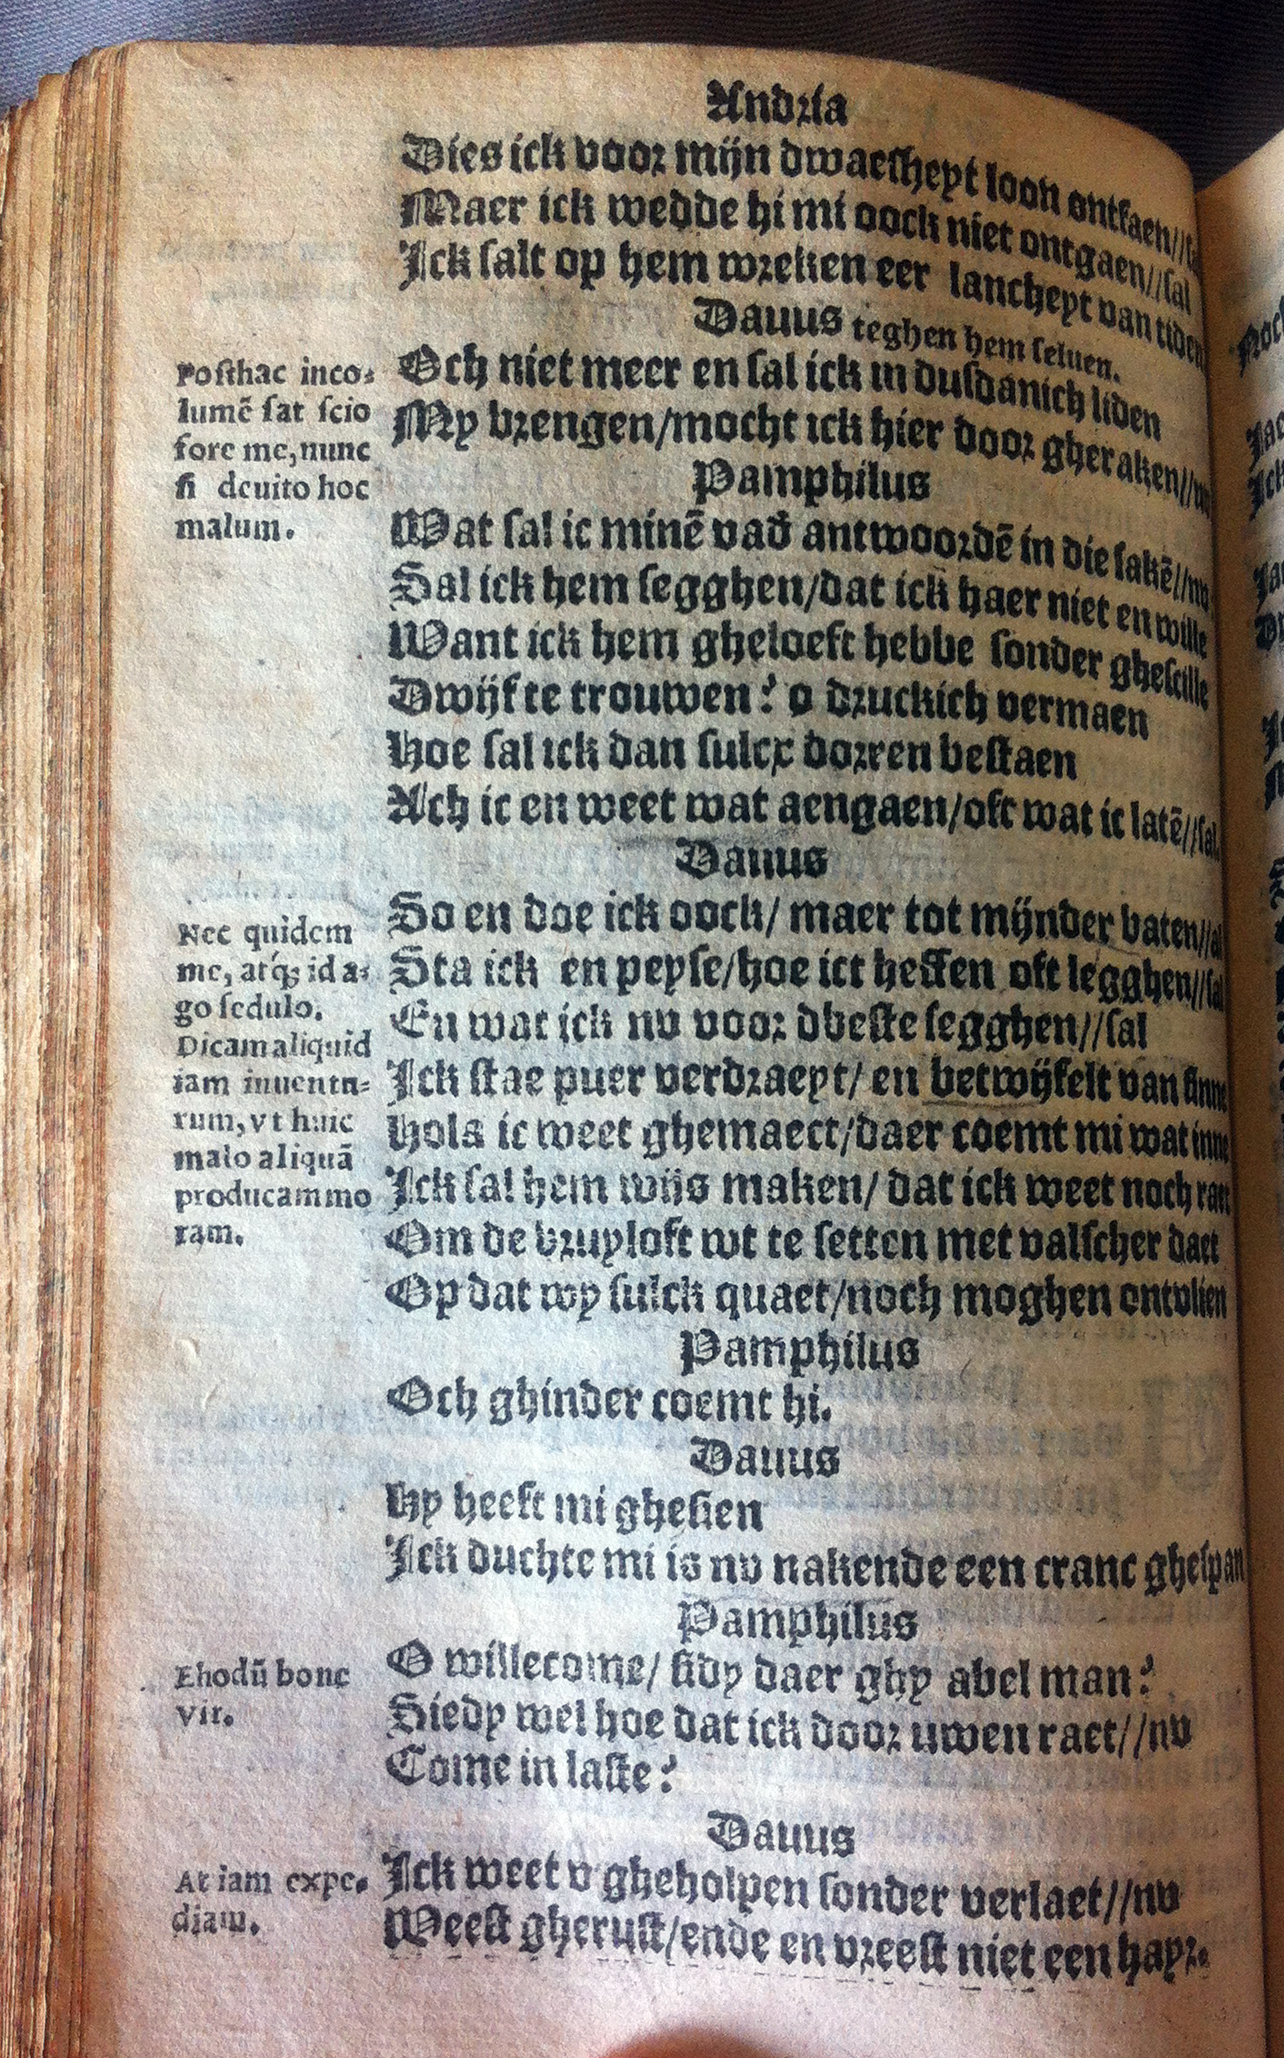 Andria
Dies ick voor mijn dwaesheyt loon ontfaen//sal
Maer ick wedde hi mi oock niet ontgaen//sal
Ick salt op hem wreken eer lancheyt van tiden
Dauus teghen hem seluen.
Posthac inco-
lumē sat scio
fore me, nunc
si deuito hoc
malum.
Och niet meer en sal ick in dusdanich liden
My brengen/mocht ick hier door gheraken//nv
Pamphilus
Wat sal ic minē vad antwoordē in die sakē//nv
Sal ick hem segghen/dat ick haer niet en wille
Want ick hem gheloeft hebbe sonder ghescille
Dwijf te trouwen? o druckich vermaen
Hoe sal ick dan sulcx dorren bestaen
Ach ic en weet wat aengaen/oft wat ic latē//sal.
Dauus
Nec quidem
me, atq; id a-
go sedulo.
Dicam aliquid
iam inuentu-
rum, vt huic
malo aliquā
producam mo
ram.
So en doe ick oock/ maer tot mijnder baten//al
Sta ick en peyse/hoe ict heffen oft legghen//sal
En wat ick nv voor dbeste segghen//sal
Ick stae puer verdraeyt/ en betwijfelt van sinne
Hola ic weet ghemaect/daer coemt mi wat inne
Ick sal hem wijs maken/ dat ick weet noch raet
Om de bruyloft wt te setten met valscher daet
Op dat wy sulck quaet/noch moghen ontvlien
Pamphilus
Och ghinder coemt hi.
Dauus
Hy heeft mi ghesien
Ick duchte mi is nv nakende een cranc ghespan
Pamphilus
Ehodū bone
vir.
O willecome/ sidy daer ghy abel man?
Siedy wel hoe dat ick door uwen raet//nv
Come in laste?
Dauus
At iam expe-
diam.
Ick weet v gheholpen sonder verlaet//nv
Weest gherust/ende en vreest niet een hayr.